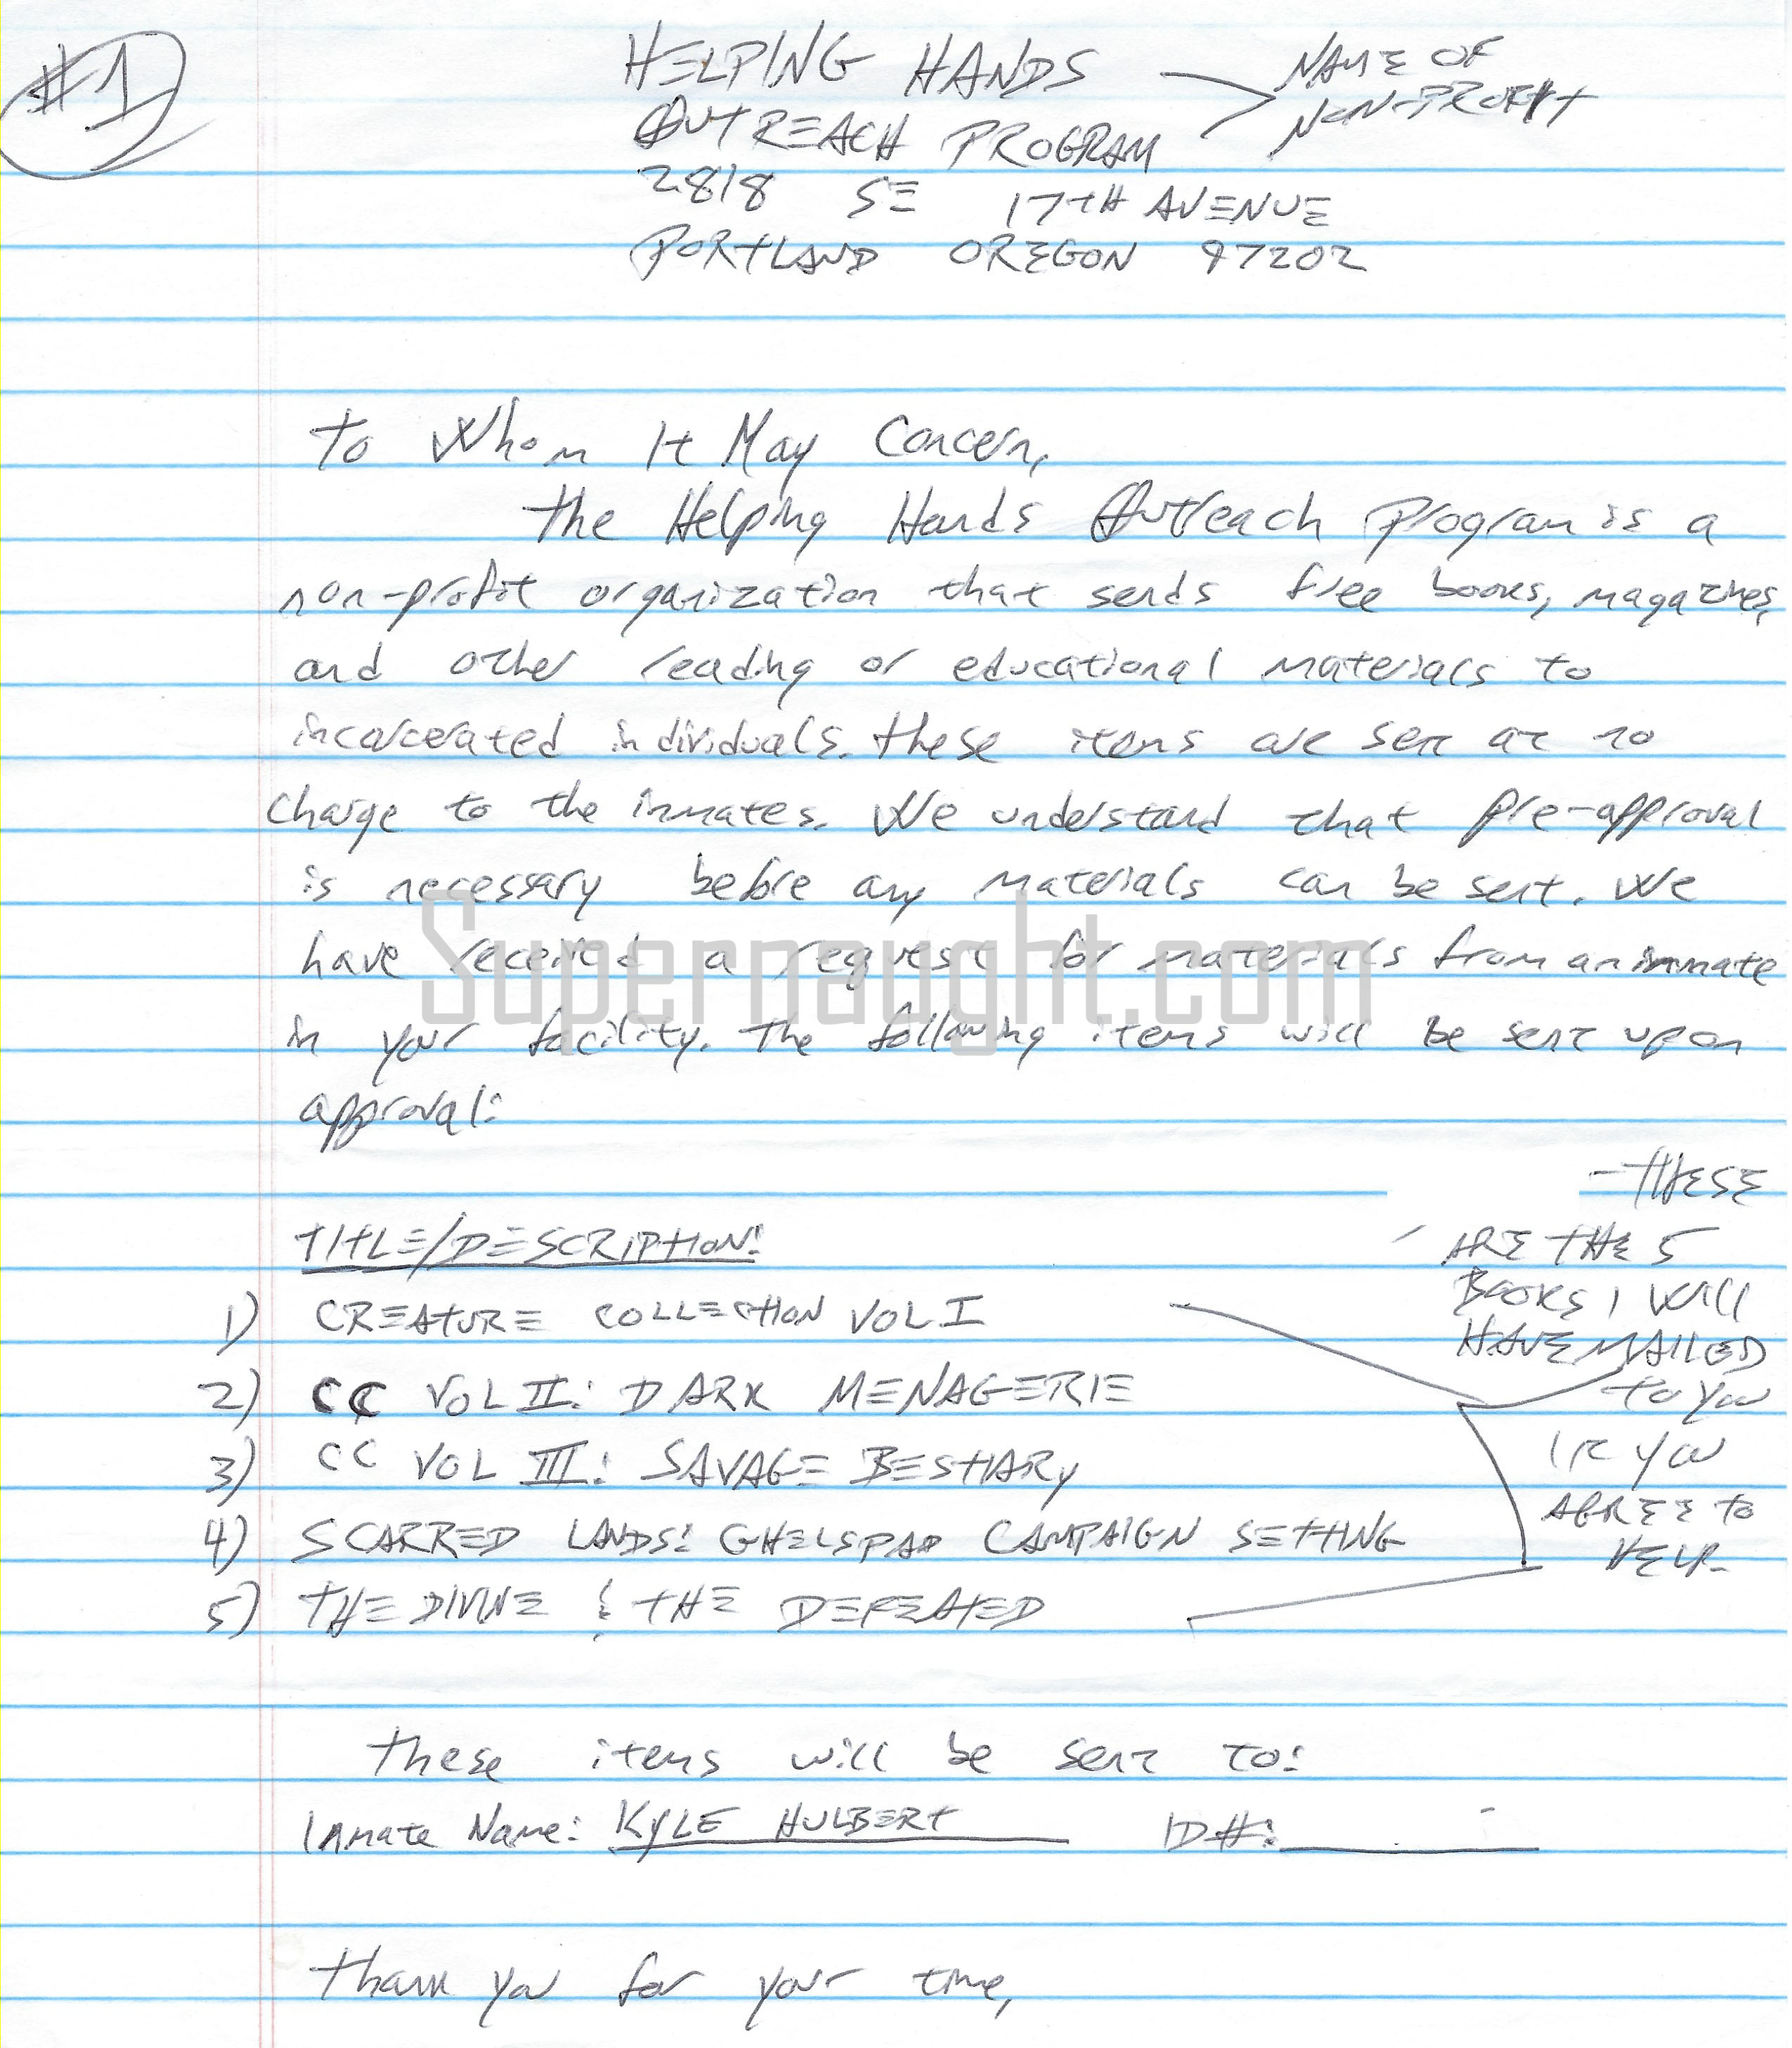 #1
HELPING HANDS
OUTREACH PROGRAM
NAME OF
NON-PROFIT
2818 SE 17TH AVENUE
PORTLAND OREGON 97202
To Whom It May Concern,
The Helping Hands Outreach Program is a
non-profit organization that sends free books, magazines,
and other reading or educational materials to
incarcerated individuals. These items are sent at no
charge to the inmates. We understand that pre-approval
is necessary before any materials can be sent. We
have received a request for materials from an inmate
in your facility. The following items will be sent upon
approval:
Supernaught.com
TITLE/DESCRIPTION:
1) CREATURE COLLECTION VOL I
2) CC VOL II: DARK MENAGERIE
3) CC VOL III: SAVAGE BESTIARY
4) SCARRED LANDS: GHELSPAD CAMPAIGN SETTING
5) THE DIVINE & THE DEFEATED
-THESE
ARE THE 5
BOOKS I WILL
HAVE MAILED
TO YOU
IF YOU
AGREE TO
HELP.
These items will be sent to:
Inmate Name: KYLE HULBERT ID#:
Thank you for your time,